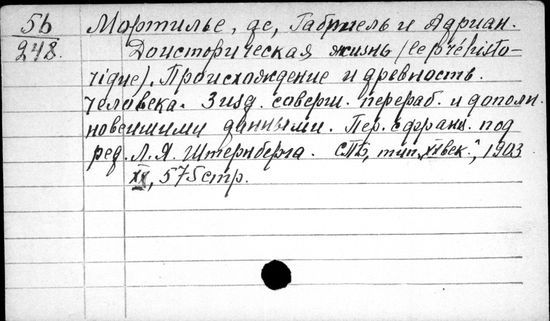 5б Мортилье, де, Габриель и Адриан.
248. Доисторическая жизнь (le préhisto-
rique). Происхождение и древность
человека. 3 изд. соверш. перераб. и дополн.
новейшими данными. Пер. с франц. под
ред. Л. Я. Штернберга. СПБ, тип. „XX век", 1903
XX, 575 стр.